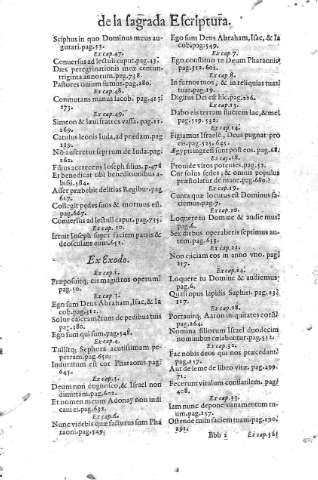 de la sagrada Escriptura.
Sciphus in quo Dominus meus au-
gurari. pag.15.
Ex cap.47.
Conuersus ad lectuli caput. pag.45.
Dies peregrinationis meæ centum
triginta annorum. pag.738.
Pastores ouium sumus. pag.280.
Ex cap.48.
Commutans manus Iacob. pag.
173.
Ex cap.49.
Simeon & Leui fratres vasa. pag.
169.
Catulus leonis Iuda, ad prædam. pag.
Non auferetur sceptrum de Iuda. pag.
162.
Filius accrescens Ioseph filius. p.
Et benedicat tibi benedictionibus a-
bissi.
Aser præbebit delitias Regibus. pag.
617.
Collegit pedes suos & mortuus est.
pag.667.
Conuersus ad lectuli caput. pag.735.
Ex cap.50.
Iruit Ioseph super faciem patris &
deosculans eum. 651.
Ex Exodo.
Ex cap.1.
Præposuitq; eis magistros operum.
pag.50.
Ex cap.3.
Ego sum Deus Abraham, Isac, & Ia
cob. pag.512.
Solue calceamentum de pedibus tuis
pag.180.
Ego sum qui sum. pag.548.
Ex cap.4.
Tulitq; Sephora acutissimam pe-
petram. pag.
Induratum est cor Pharaonis. pag.
645.
Ex cap.5.
Deum non cognosco, & Israel non
dimittam. pag.602.
Et nomen meum Adonay non indi
caui ei. pag.632.
Ex cap.6.
Nunc videbis quæ facturus sum Pha
raoni. pag.549.
Ego sum Deus Abraham, Isac, & Ia
cob. pag.549.
Ex cap.7.
Ego constitui te Deum Pharaonis
pag.512. 602.
Ex cap.8.
In furnos tuos, & in reliquias
tuas.
Digitus Dei est hic. pag.226.
Ex cap.13.
Dabo eis terram fluentem lac, & mel
pag.519. 532.
Ex cap.14.
Fugiamus Israele, Deus pugnat pro
eis. pag.525. 645.
Ægyptij aegressi sunt post eos. pag.68.
Ex cap.18.
Prouide viros potentes. pag.52.
Cur solus sedes, & omnis populus
præstolatur de mane. pag.680.
Ex cap.19.
Cuncta quæ locutus est Dominus fa-
ciemus. pag.7.
Ex cap.20.
Loquere tu Domine & audiemus
pag.6.
Sex diebus operaberis septimus au-
tem. pag.633.
Ex cap.21.
Non eiiciam eos in anno vno. pag.
217.
Ex cap.24.
Loquere tu Domine, & audiemus.
pag.6.
Quasi opus lapidis Saphiri. pag.13.
Ex cap.28.
Portauitq; Aaron iniquitates eorum
pag.164.
Nomina filiorum Israel duodecim
nominibus cælabuntur. pag.
Ex cap.32.
Fac nobis deos qui nos præcedant
pag.217.
Aut dele me de libro vitæ. pag.299.
71.
Fecerunt vitulum conflatilem. pag.
408.
Ex cap.33.
Iam nunc depone ornamentum tu-
um. pag.217.
Ostende mihi faciem tuam. pag.190.
393.
Bbb 2
Ex cap.36.